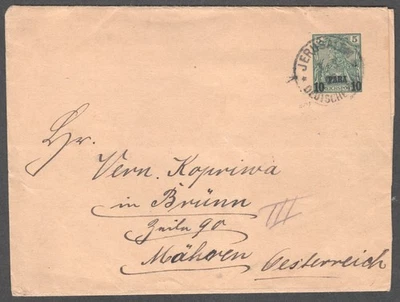 5
JERUSALEM
10 PARA 10
DEUTSCHE
Hr.
Vern. Kopriwa
in Brünn
Zeile 90
III
Mähren Oesterreich